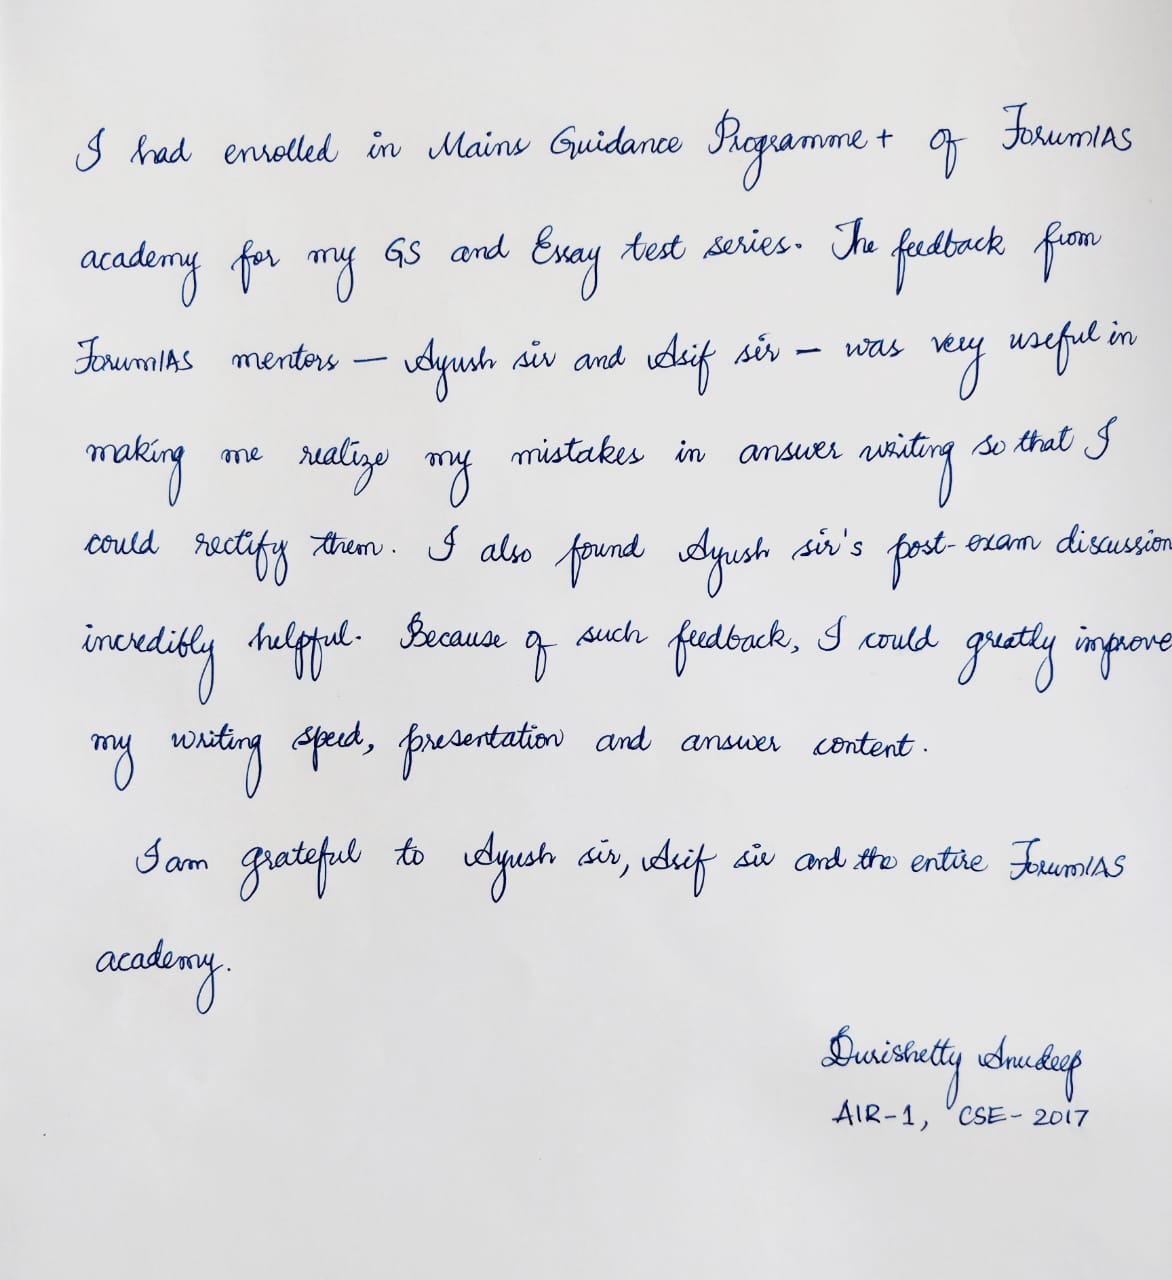 I had enrolled in Mains Guidance Programme+ of ForumIAS
academy for my GS and Essay test series. The feedback from
ForumIAS mentors – Ayush sir and Asif sir – was very useful in
making me realize my mistakes in answer writing so that I
could rectify them. I also found Ayush sir's post-exam discussion
incredibly helpful. Because of such feedback, I could greatly improve
my writing speed, presentation and answer content.
I am grateful to Ayush sir, Asif sir and the entire ForumIAS
academy.
Durishetty Anudeep
AIR-1, CSE-2017